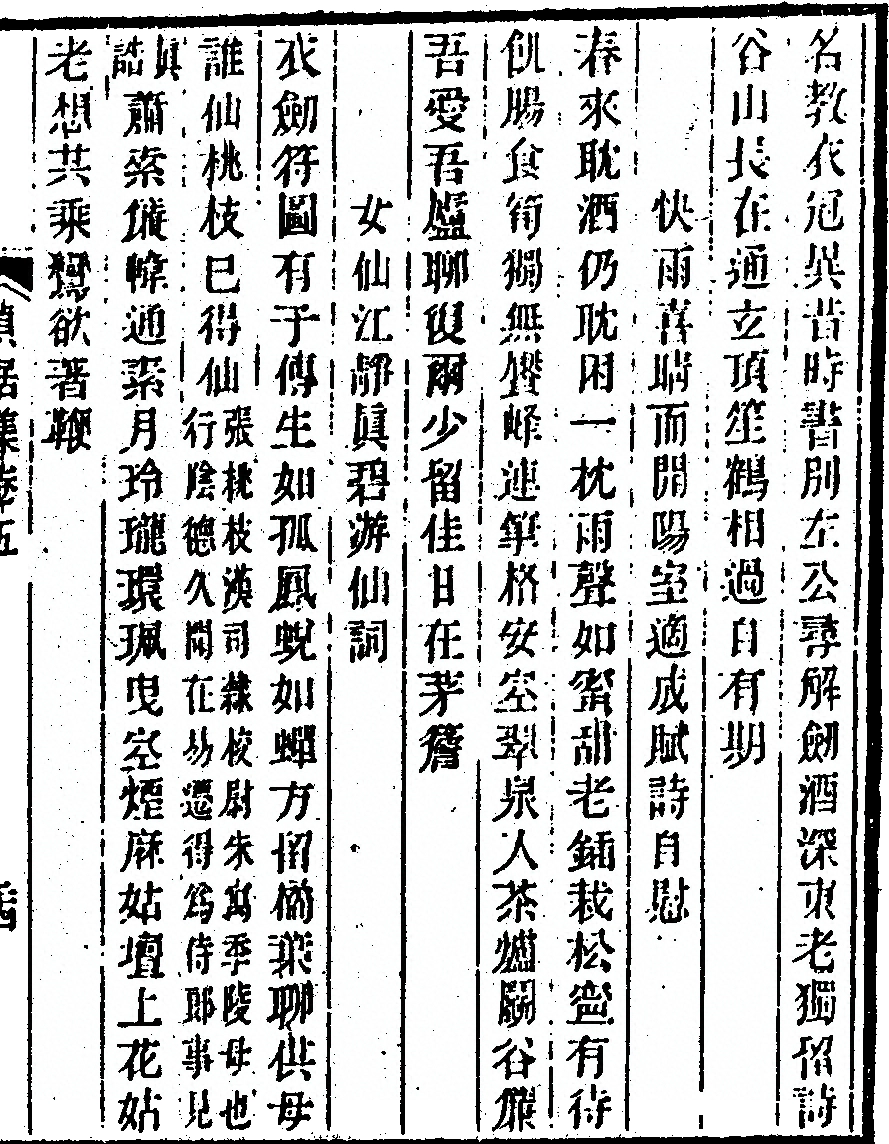 名教衣冠異昔時書別左公尋解劒酒深東老獨留詩
谷山長在通立頂笙鶴相過自有期
快雨喜晴而開陽室適成賦詩自慰
春來耽酒仍耽困一枕雨聲如蜜甜老鍤栽松豈有待
飢腸食筍獨無饜峰連筆格安空翠泉入茶爐鬭谷簾
吾愛吾廬聊復爾少留佳日在茅簷
女仙江靜眞碧游仙詞
衣劒符圖有子傳生如孤鳳蛻如蟬方留檞葉聊供母
誰仙桃枝已得仙張桃枝漢司隷校尉朱寓季陵母也行陰德久聞在易遷得爲侍郎事見
眞誥蕭索幰通素月玲瓏環珮曳空煙麻姑壇上花姑
老想共乘鸞欲著鞭
貞居集卷五